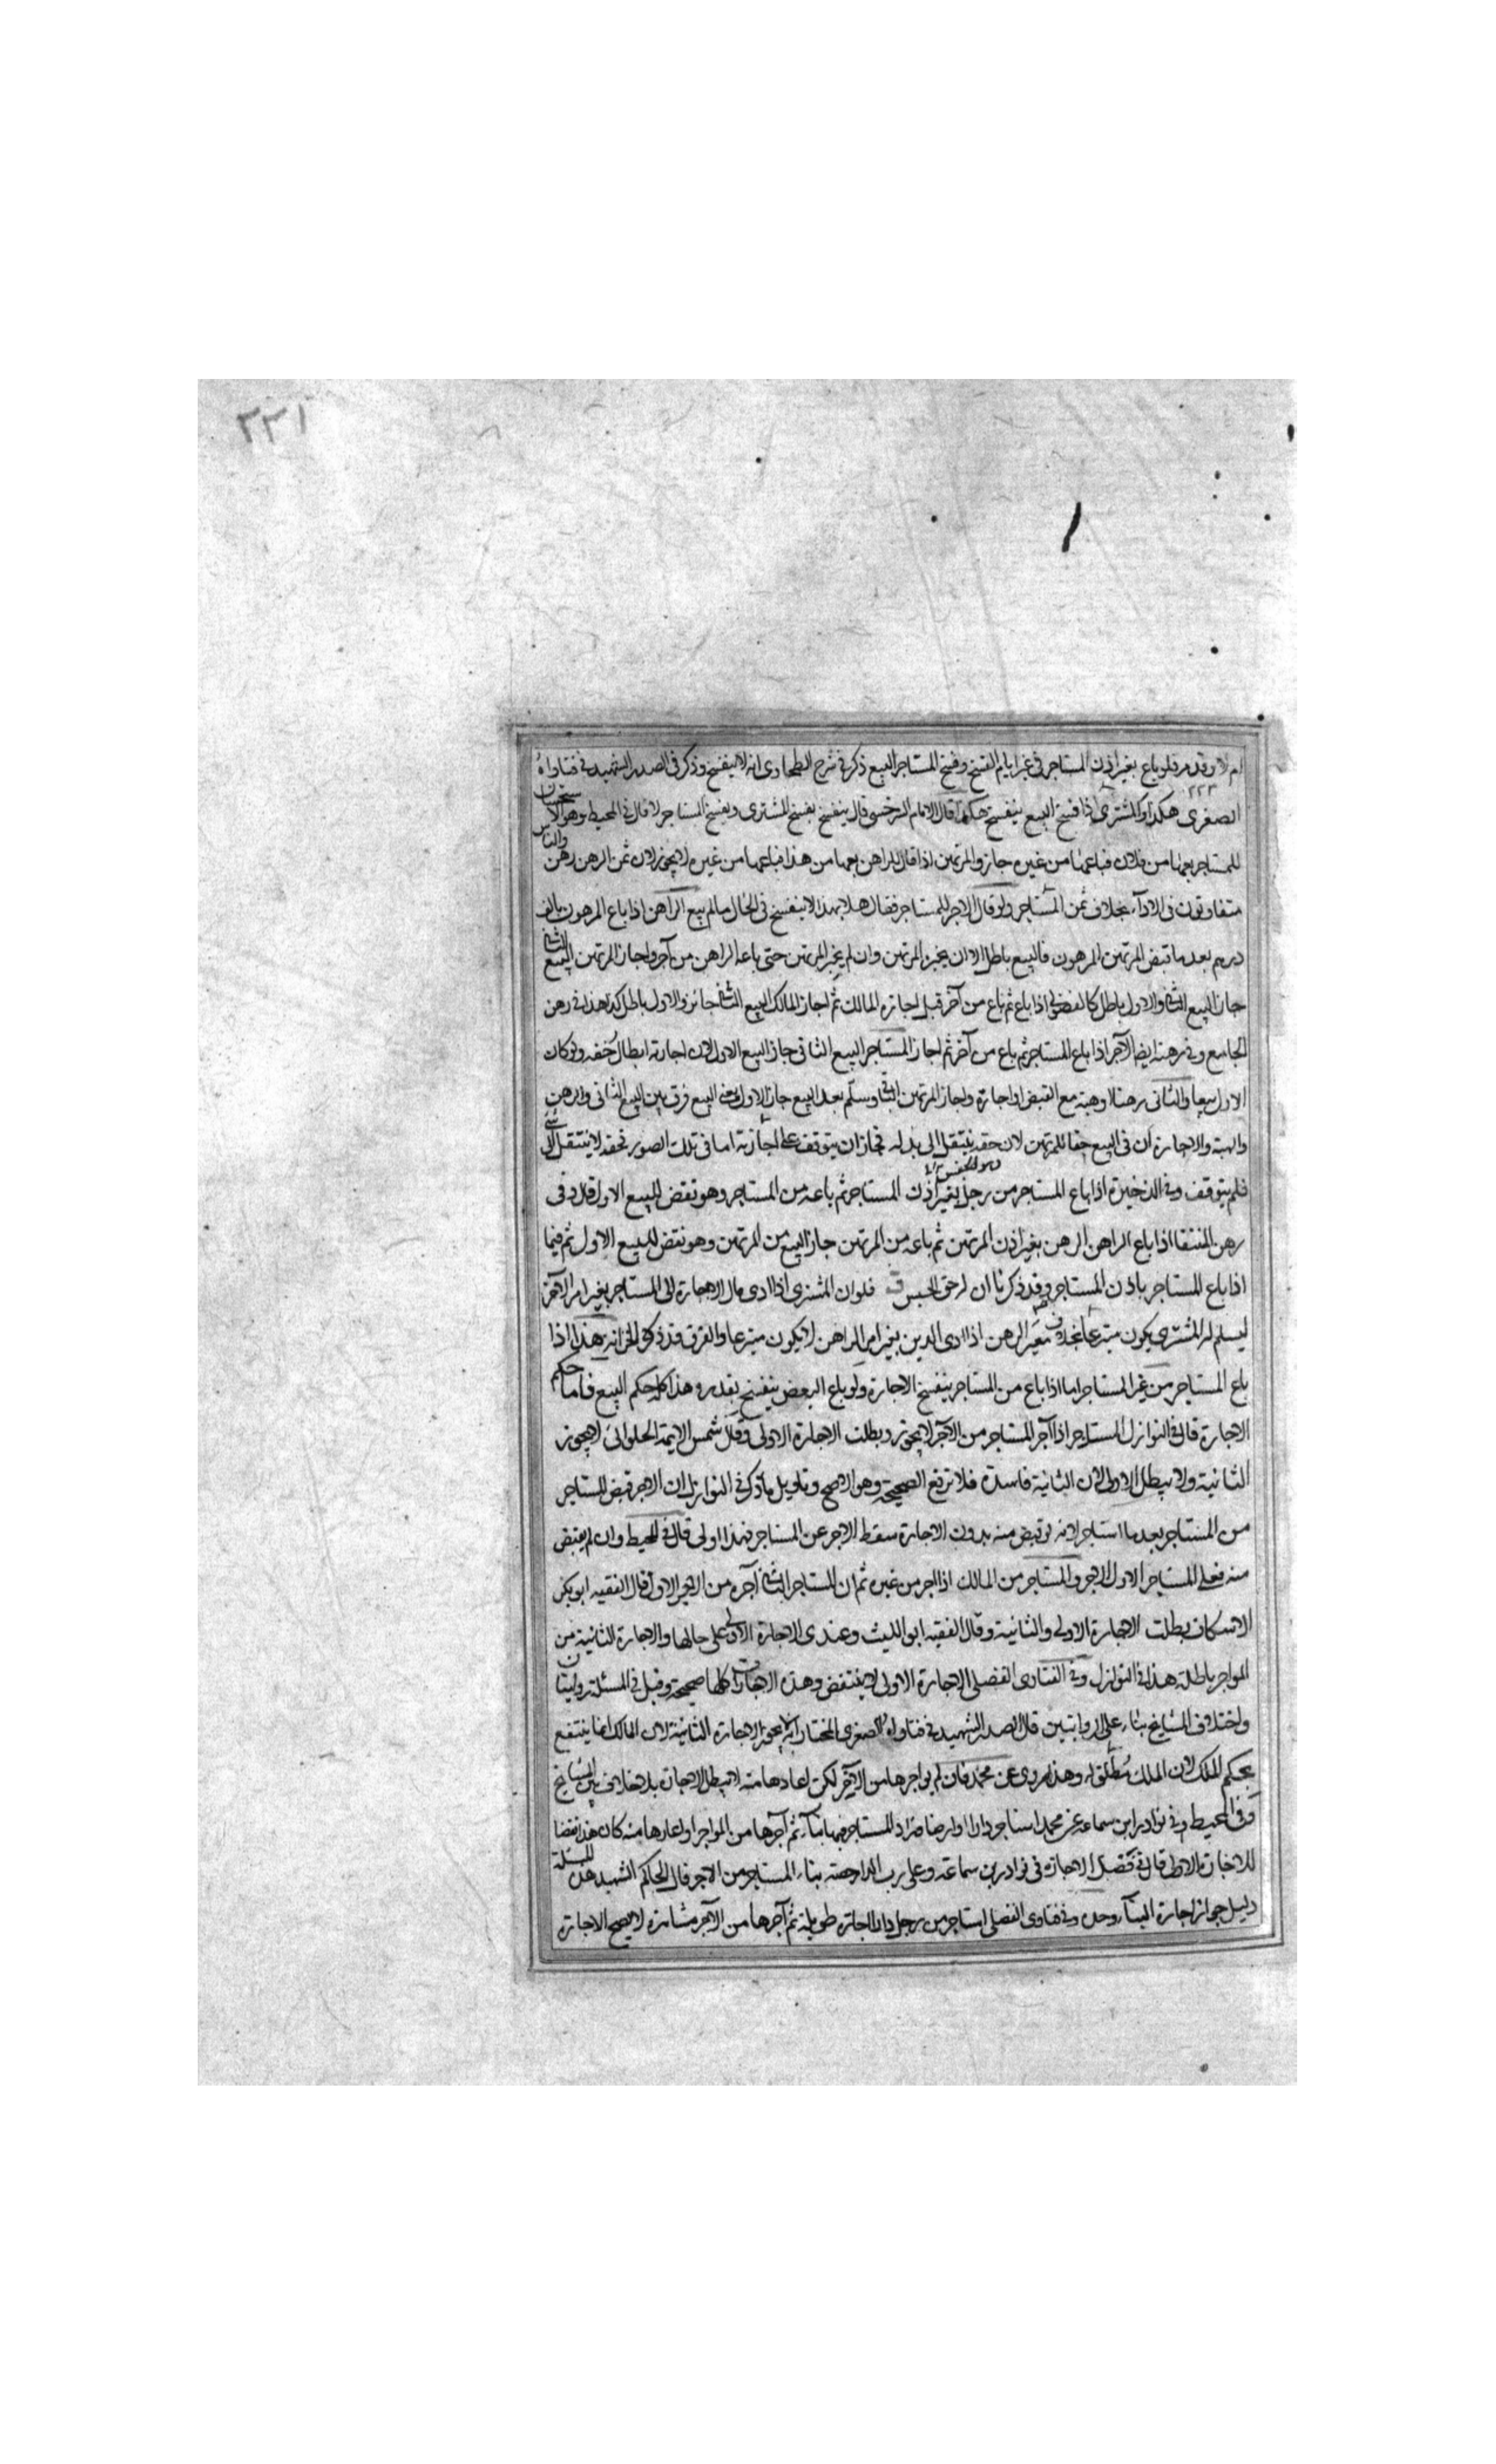 ٢٢١
ام لا وقد مر فلو باع بغير اذن المستاجر فى غير ايام الفسخ وفسخ المستاجر البيع ذكر فى شرح الطحاوى انه لا ينفسخ وذكر فى الصدر الشهيد فى فتاواه
الصغرى هكذا والمشترى اذا فسخ البيع ينفسخ هكذا قال الامام السرخسى قال ينفسخ بفسخ المشترى وبفسخ المستاجر لا قال فى المحيط وهو الاستحسان
للمستاجر بعها من فلان فباعها من غيره جاز والمرتهن اذا قال للراهن بعها من هذا فباعها من غيره لا يجوز لان ثمن الرهن رهن والناس
متفاوتون فى الاداء بخلاف ثمن المستاجر ولو قال الاجر للمستاجر فقال هلا بهذا لا ينفسخ فى الحال ما لم يبع الراهن اذا باع المرهون بالف
درهم بعد ما قبض المرتهن المرهون فالبيع باطل الا ان يجيز المرتهن وان لم يجز المرتهن حتى باعه الراهن من آخر واجاز المرتهن البيع الثانى
جاز البيع الثانى والاول باطل كالفضولى اذا باع ثم باع من آخر قبل اجازة المالك ثم اجاز المالك البيع الثانى جائز والاول باطل كذا هذا فى رهن
الجامع وفى رهنه ايضا الآجر اذا باع المستاجر ثم باع من آخر ثم اجاز المستاجر البيع الثانى جاز البيع الاول لان اجازته ابطال حقه ولو كان
الاول بيعا والثانى رهنا او هبة مع القبض او اجارة واجاز المرتهن الثانى وسلم بعد البيع جاز الاول يعنى البيع فرق بين البيع الثانى والرهن
والهبة والاجارة ان فى البيع حقا للمرتهن لان حقه ينتقل الى بدله فجاز ان يتوقف على اجازته اما فى تلك الصور فحقه لا ينتقل الى شئ
فلم يتوقف وفى الذخيرة اذا باع المستاجر من رجل بغير اذن المستاجر ثم باعه من المستاجر وهو نقض للبيع الاول قلت وفى
رهن المنتقا اذا باع الراهن الرهن بغير اذن المرتهن ثم باعه من المرتهن جاز البيع من المرتهن وهو نقض للبيع الاول ثم فيما
اذا باع المستاجر باذن المستاجر وقد ذكرنا ان له حق الحبس فلو ان المشترى اذا ادى مال الاجارة الى المستاجر بغير امر الآجر
ليسلم له المشترى يكون متبرعا بخلاف معير الرهن اذا ادى الدين بغير امر الراهن لا يكون متبرعا والفرق قد ذكر فى الخزانة هذا اذا
باع المستاجر من غير المستاجر اما اذا باع من المستاجر ينفسخ الاجارة ولو باع البعض ينفسخ بقدره هذا كله حكم البيع فاما حكم
الاجارة قال فى النوازل المستاجر اذا آجر المستاجر من الآجر لا يجوز وبطلت الاجارة الاولى وقال شمس الايمة الحلوانى لا يجوز
الثانية ولا يبطل الاولى لان الثانية فاسدة فلا ترفع الصحيحة وهو الاصح وتاويل ما ذكر فى النوازل ان الاجر قبض المستاجر
من المستاجر بعد ما استاجر لانه لو قبض منه بدون الاجارة سقط الاجر عن المستاجر فهذا اولى قال فى المحيط وان لم يقبض
منه فعلى المستاجر الاول الاجر والمستاجر من المالك اذا اجر من غيره ثم ان المستاجر الثانى آجره من الاجر الاول قال الفقيه ابو بكر
الاسكاف بطلت الاجارة الاولى والثانية وقال الفقيه ابو الليث وعندى الاجارة الاولى على حالها والاجارة الثانية من
المواجر باطلة هذا فى النوازل وفى الفتاوى الفضلى الاجارة الاولى لا ينتقض وهذه الاجارات كلها صحيحة وقيل فى المسئلة روايتان
واختلاف المشايخ بناء على الروايتين قال الصدر الشهيد فى فتاواه الصغرى المختار انه لا يجوز الاجارة الثانية لان المالك انما ينتفع
بحكم الملك لان الملك مطلق له وهذا مروى عن محمد فان لم يواجرها من الآجر لكن اعادها منه لا يبطل الاجارة بلا خلاف بين المشايخ
وفى المحيط وفى نوادر ابن سماعه عن محمد استاجر دارا او ارضا فزاد المستاجر فيها بناء ثم آجرها من المواجر او اعارها منه كان هذا نقضا
للاجارة الاولى قال فى فصل الاجارة فى نوادر بن سماعة وعلى رب الدار حصة بناء المستاجر من الاجر قال الحاكم الشهيد هذه المسئلة
دليل جواز اجارة البناء وحده وفى فتاوى الفضلى استاجر من رجل دارا اجارة طويلة ثم آجرها من الآجر مشاهرة لا يصح الاجارة